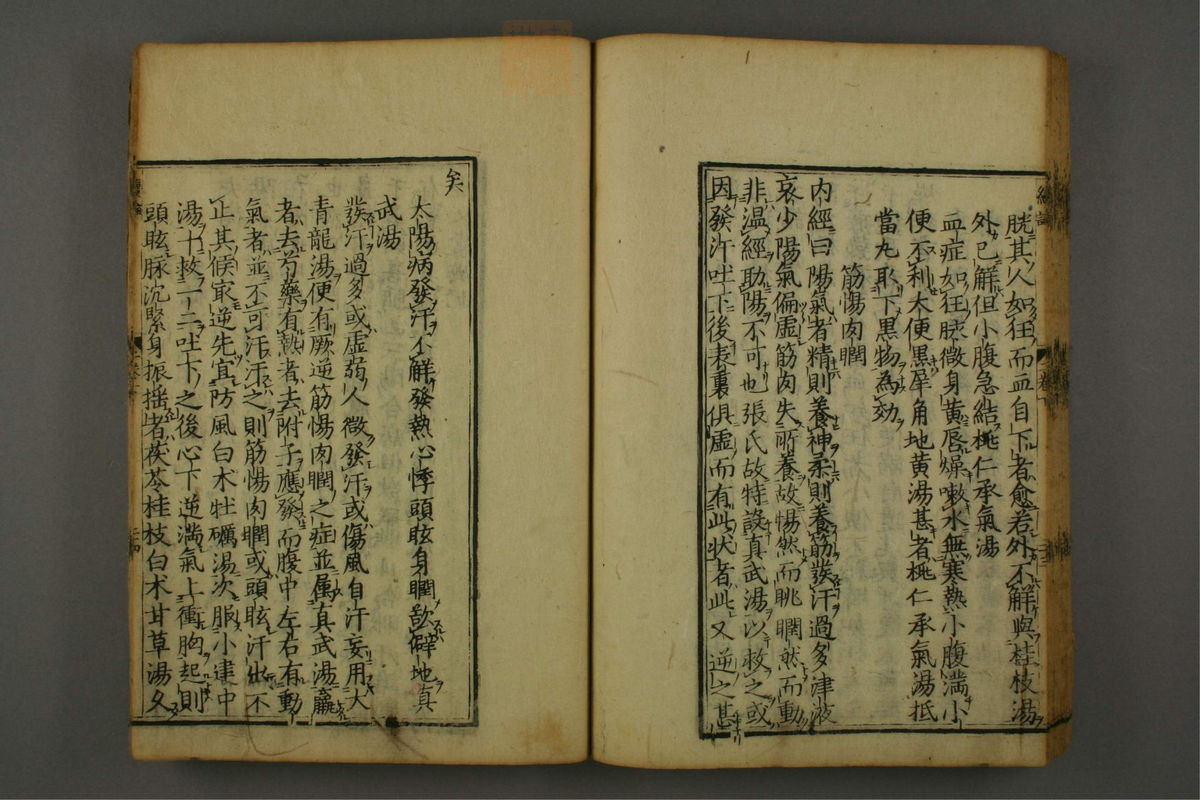 胱其人如狂而血自下者愈若外不解與桂枝湯
外已解但小腹急結桃仁承氣湯
血症如狂脉微身黄唇燥嗽水無寒熱小腹満小
便不利大便黒犀角地黄湯甚者桃仁承氣湯抵
當丸取下黒物為効
筋惕肉瞤
内經曰陽氣者精則養神柔則養筋發汗過多津液
哀少陽氣偏虚筋肉失所養故惕然而眺瞤然而動
非温經助陽不可也張氏故特設真武湯以救之或
因發汗吐下後表裏俱虚而有此状者此又逆之甚
矣
太陽病發汗不解發熱心悸頭眩身瞤欲僻地真
武湯
發汗過多或虚弱人微發汗或傷風自汗妄用大
青龍湯便有厥逆筋惕肉瞤之症並属真武湯羸
者去芍藥有熱者去附子應發而腹中左右有動
氣者並不可汗汗之則筋惕肉瞤或頭眩汗出不
正其候㝡逆先宜防風白术牡礪湯次服小建中
湯十救一二吐下之後心下逆満氣上衝胸起則
頭眩脉沉緊身振揺者茯苓桂枝白术甘草湯久